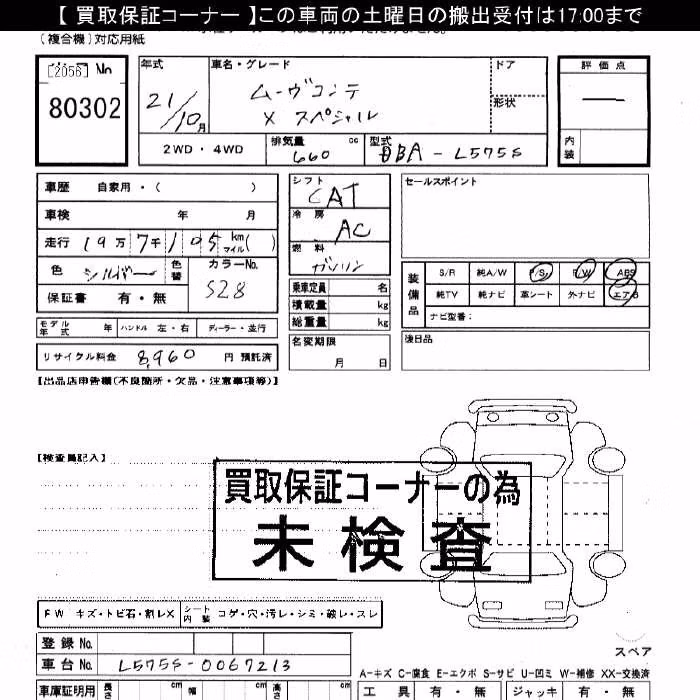 【 買取保証コーナー 】この車両の土曜日の搬出受付は17:00まで
(複合機)対応用紙
[2056] No
80302
年式 21/10月
車名・グレード ムーヴコンテ X スペシャル
ドア
形状
評価点
内装
2WD・4WD
排気量 660 cc
型式 DBA-L575S
車歴 自家用・( )
車検 年 月
走行 19万7千105 km マイル( )
色 シルバー 色替 カラーNo. S28
保証書 有・無
モデル年式 年 ハンドル 左・右 ディーラー・並行
リサイクル料金 8,960 円 預託済
シフト CAT
冷房 AC
燃料 ガソリン
乗車定員 名
積載量 kg
総重量 kg
名変期限 月 日
セールスポイント
装備品
S/R 純A/W P/S P/W ABS
純TV 純ナビ 革シート 外ナビ エアB
ナビ型番:
後日品
【出品店申告欄(不良箇所・欠品・注意事項等)】
【検査員記入】
買取保証コーナーの為
未検査
FW キズ・トビ石・割レX シート内装 コゲ・穴・汚レ・シミ・破レ・スレ
登録No.
車台No. L575S-0067213
車庫証明用 長さ cm 幅 cm 高さ cm
スペア
A-キズ C-腐食 E-エクボ S-サビ U-凹ミ W-補修 XX-交換済
工具 有・無 ジャッキ 有・無